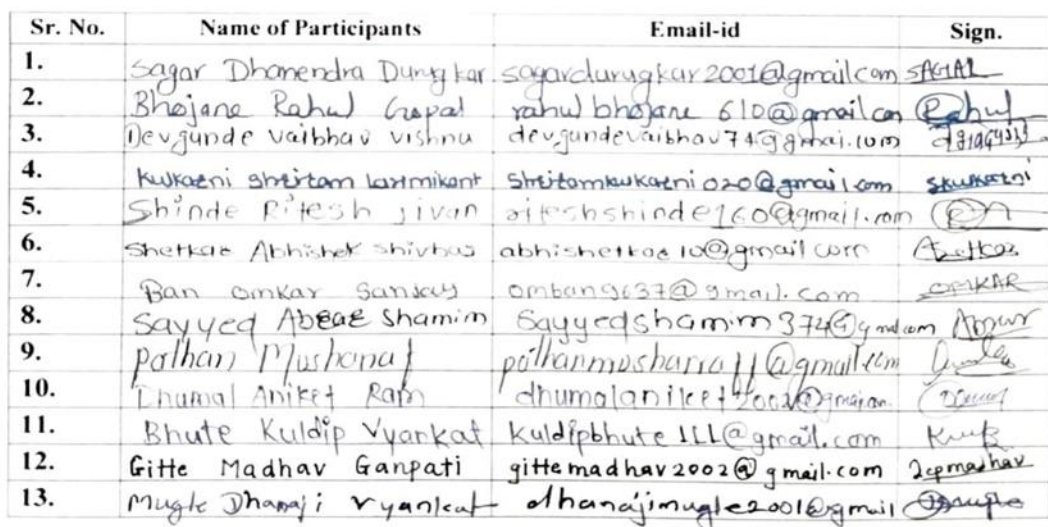 Sr. No. Name of Participants Email-id Sign.
1. Sagar Dhanendra Durugkar sagardurugkar2001@gmail.com SAGAR
2. Bhojane Rahul Gopal rahulbhojane610@gmail.com Rahul
3. Devgunde vaibhav vishnu devgundevaibhav74@gmai.com
4. Kulkarni shriram laxmikant shriramkulkarni020@gmail.com skulkarni
5. Shinde Ritesh jivan riteshshinde160@gmail.com
6. Shetkar Abhishek shivhar abhishetkar10@gmail.com
7. Ban omkar Sanjay omban9637@gmail.com OMKAR
8. Sayyed Abrar Shamim Sayyedshamim374@gmail.com
9. pathan Musharraf pathanmusharraff@gmail.com
10. Dhumal Aniket Ram dhumalaniket2002@gmai.com
11. Bhute Kuldip Vyankat kuldipbhute111@gmail.com
12. Gitte Madhav Ganpati gittemadhav2002@gmail.com
13. Mugle Dhanaji Vyankat dhanajimugle2001@gmail